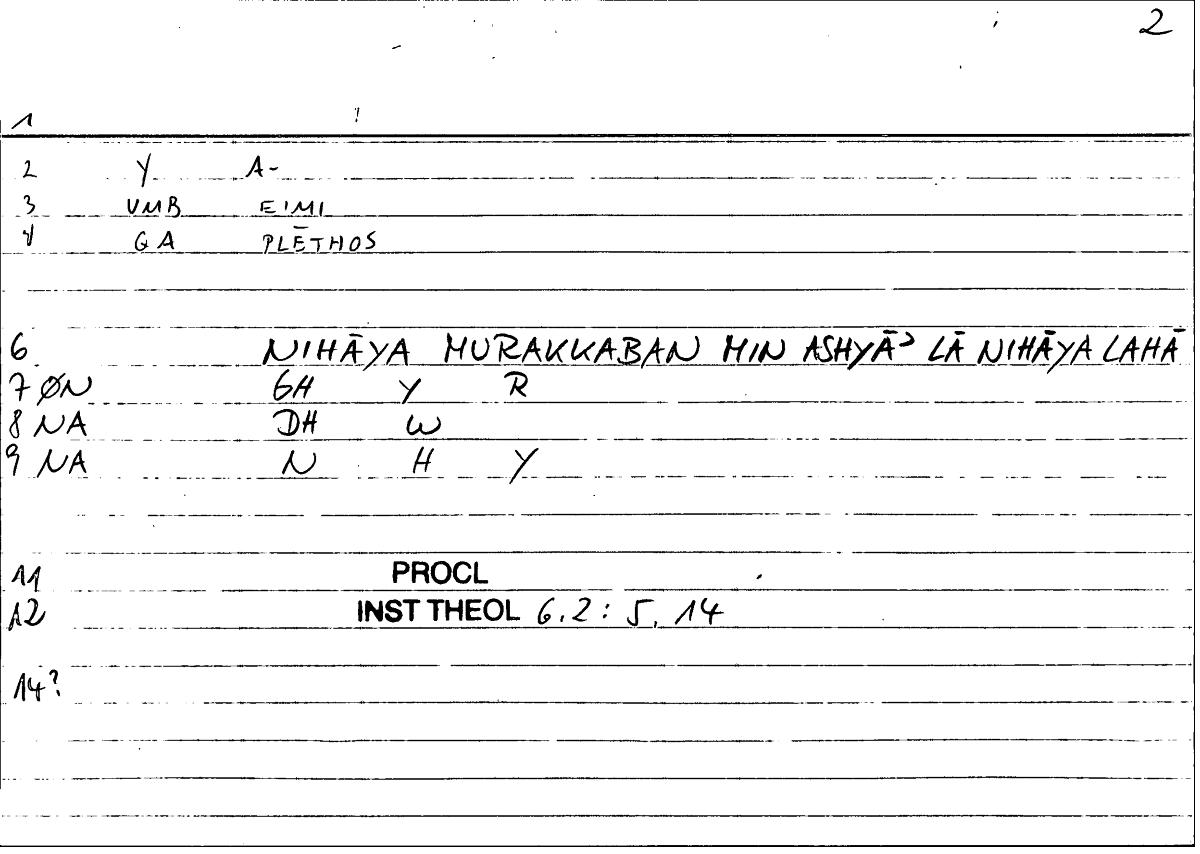 2
1
2 Y A-
3 VMB EIMI
4 GA PLĒTHOS
6 NIHĀYA MURAKKABAN MIN ASHYĀʾ LĀ NIHĀYA LAHĀ
7 ØN GH Y R
8 NA DH W
9 NA N H Y
11 PROCL
12 INST THEOL 6.2: 5, 14
14?